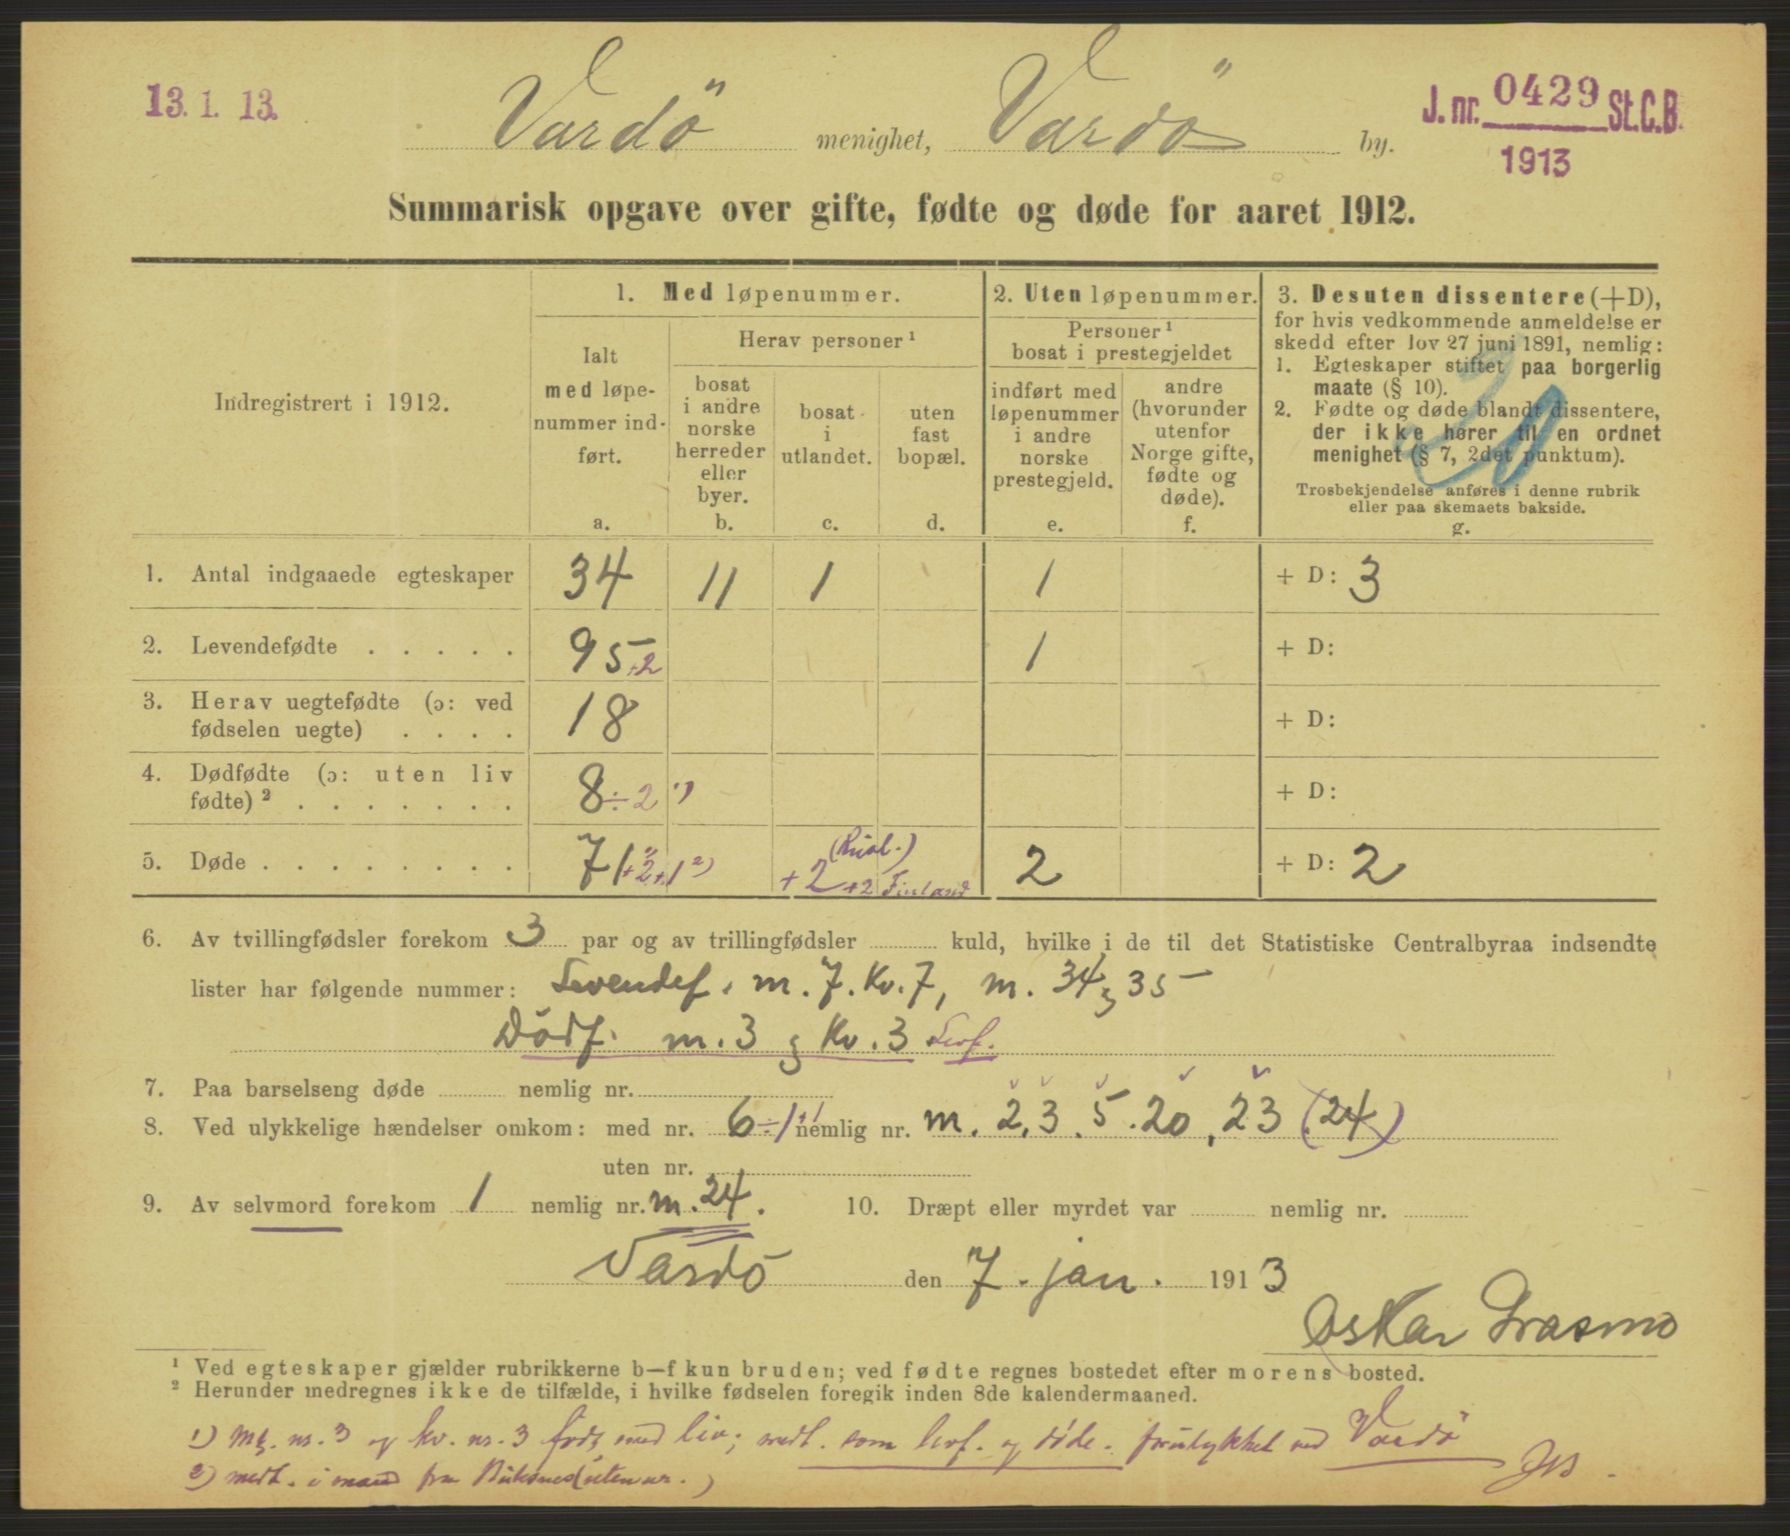 13. 1. 13.
Vardö menighet, Vardö by.
J. nr. 0429 St.C.B.
1913
Summarisk opgave over gifte, fødte og døde for aaret 1912.
Indregistrert i 1912.
1. Med løpenummer.
Ialt med løpenummer indført.
a.
Herav personer ¹
bosat i andre norske herreder eller byer.
b.
bosat i utlandet.
c.
uten fast bopæl.
d.
2. Uten løpenummer.
Personer ¹ bosat i prestegjeldet
indført med løpenummer i andre norske prestegjeld.
e.
andre (hvorunder utenfor Norge gifte, fødte og døde).
f.
3. Desuten dissentere (+D),
for hvis vedkommende anmeldelse er
skedd efter lov 27 juni 1891, nemlig:
1. Egteskaper stiftet paa borgerlig
maate (§ 10).
2. Fødte og døde blandt dissentere,
der ikke hører til en ordnet
menighet (§ 7, 2det punktum).
Trosbekjendelse anføres i denne rubrik
eller paa skemaets bakside.
g.
1. Antal indgaaede egteskaper 34 11 1 1 + D: 3
2. Levendefødte . . . . . 95 +2 1 + D:
3. Herav uegtefødte (ɔ: ved
fødselen uegte) . . . . 18 + D:
4. Dødfødte (ɔ: uten liv
fødte) ² . . . . . . . 8 ÷ 2 ¹) + D:
5. Døde . . . . . . . . 71 +2 +1 ²) +2 +2 Finland 2 + D: 2
6. Av tvillingfødsler forekom 3 par og av trillingfødsler kuld, hvilke i de til det Statistiske Centralbyraa indsendte
lister har følgende nummer: Levendef. m. 7. Kv. 7, m. 34 og 35
Dödf. m. 3 og Kv. 3 Levf.
7. Paa barselseng døde nemlig nr.
8. Ved ulykkelige hændelser omkom: med nr. 6 ÷1 +1 nemlig nr. m. 2, 3. 5. 20, 23 (24)
uten nr.
9. Av selvmord forekom 1 nemlig nr. m. 24. 10. Dræpt eller myrdet var nemlig nr.
Vardö den 7. jan. 1913
Oskar Grasmo
¹ Ved egteskaper gjælder rubrikkerne b—f kun bruden; ved fødte regnes bostedet efter morens bosted.
² Herunder medregnes ikke de tilfælde, i hvilke fødselen foregik inden 8de kalendermaaned.
1) Mk. nr. 3 og kv. nr. 3 født med liv; medt. som levf. og døde. forulykket ved Vardö
2) medt. 1 mand fra (uten nr.)